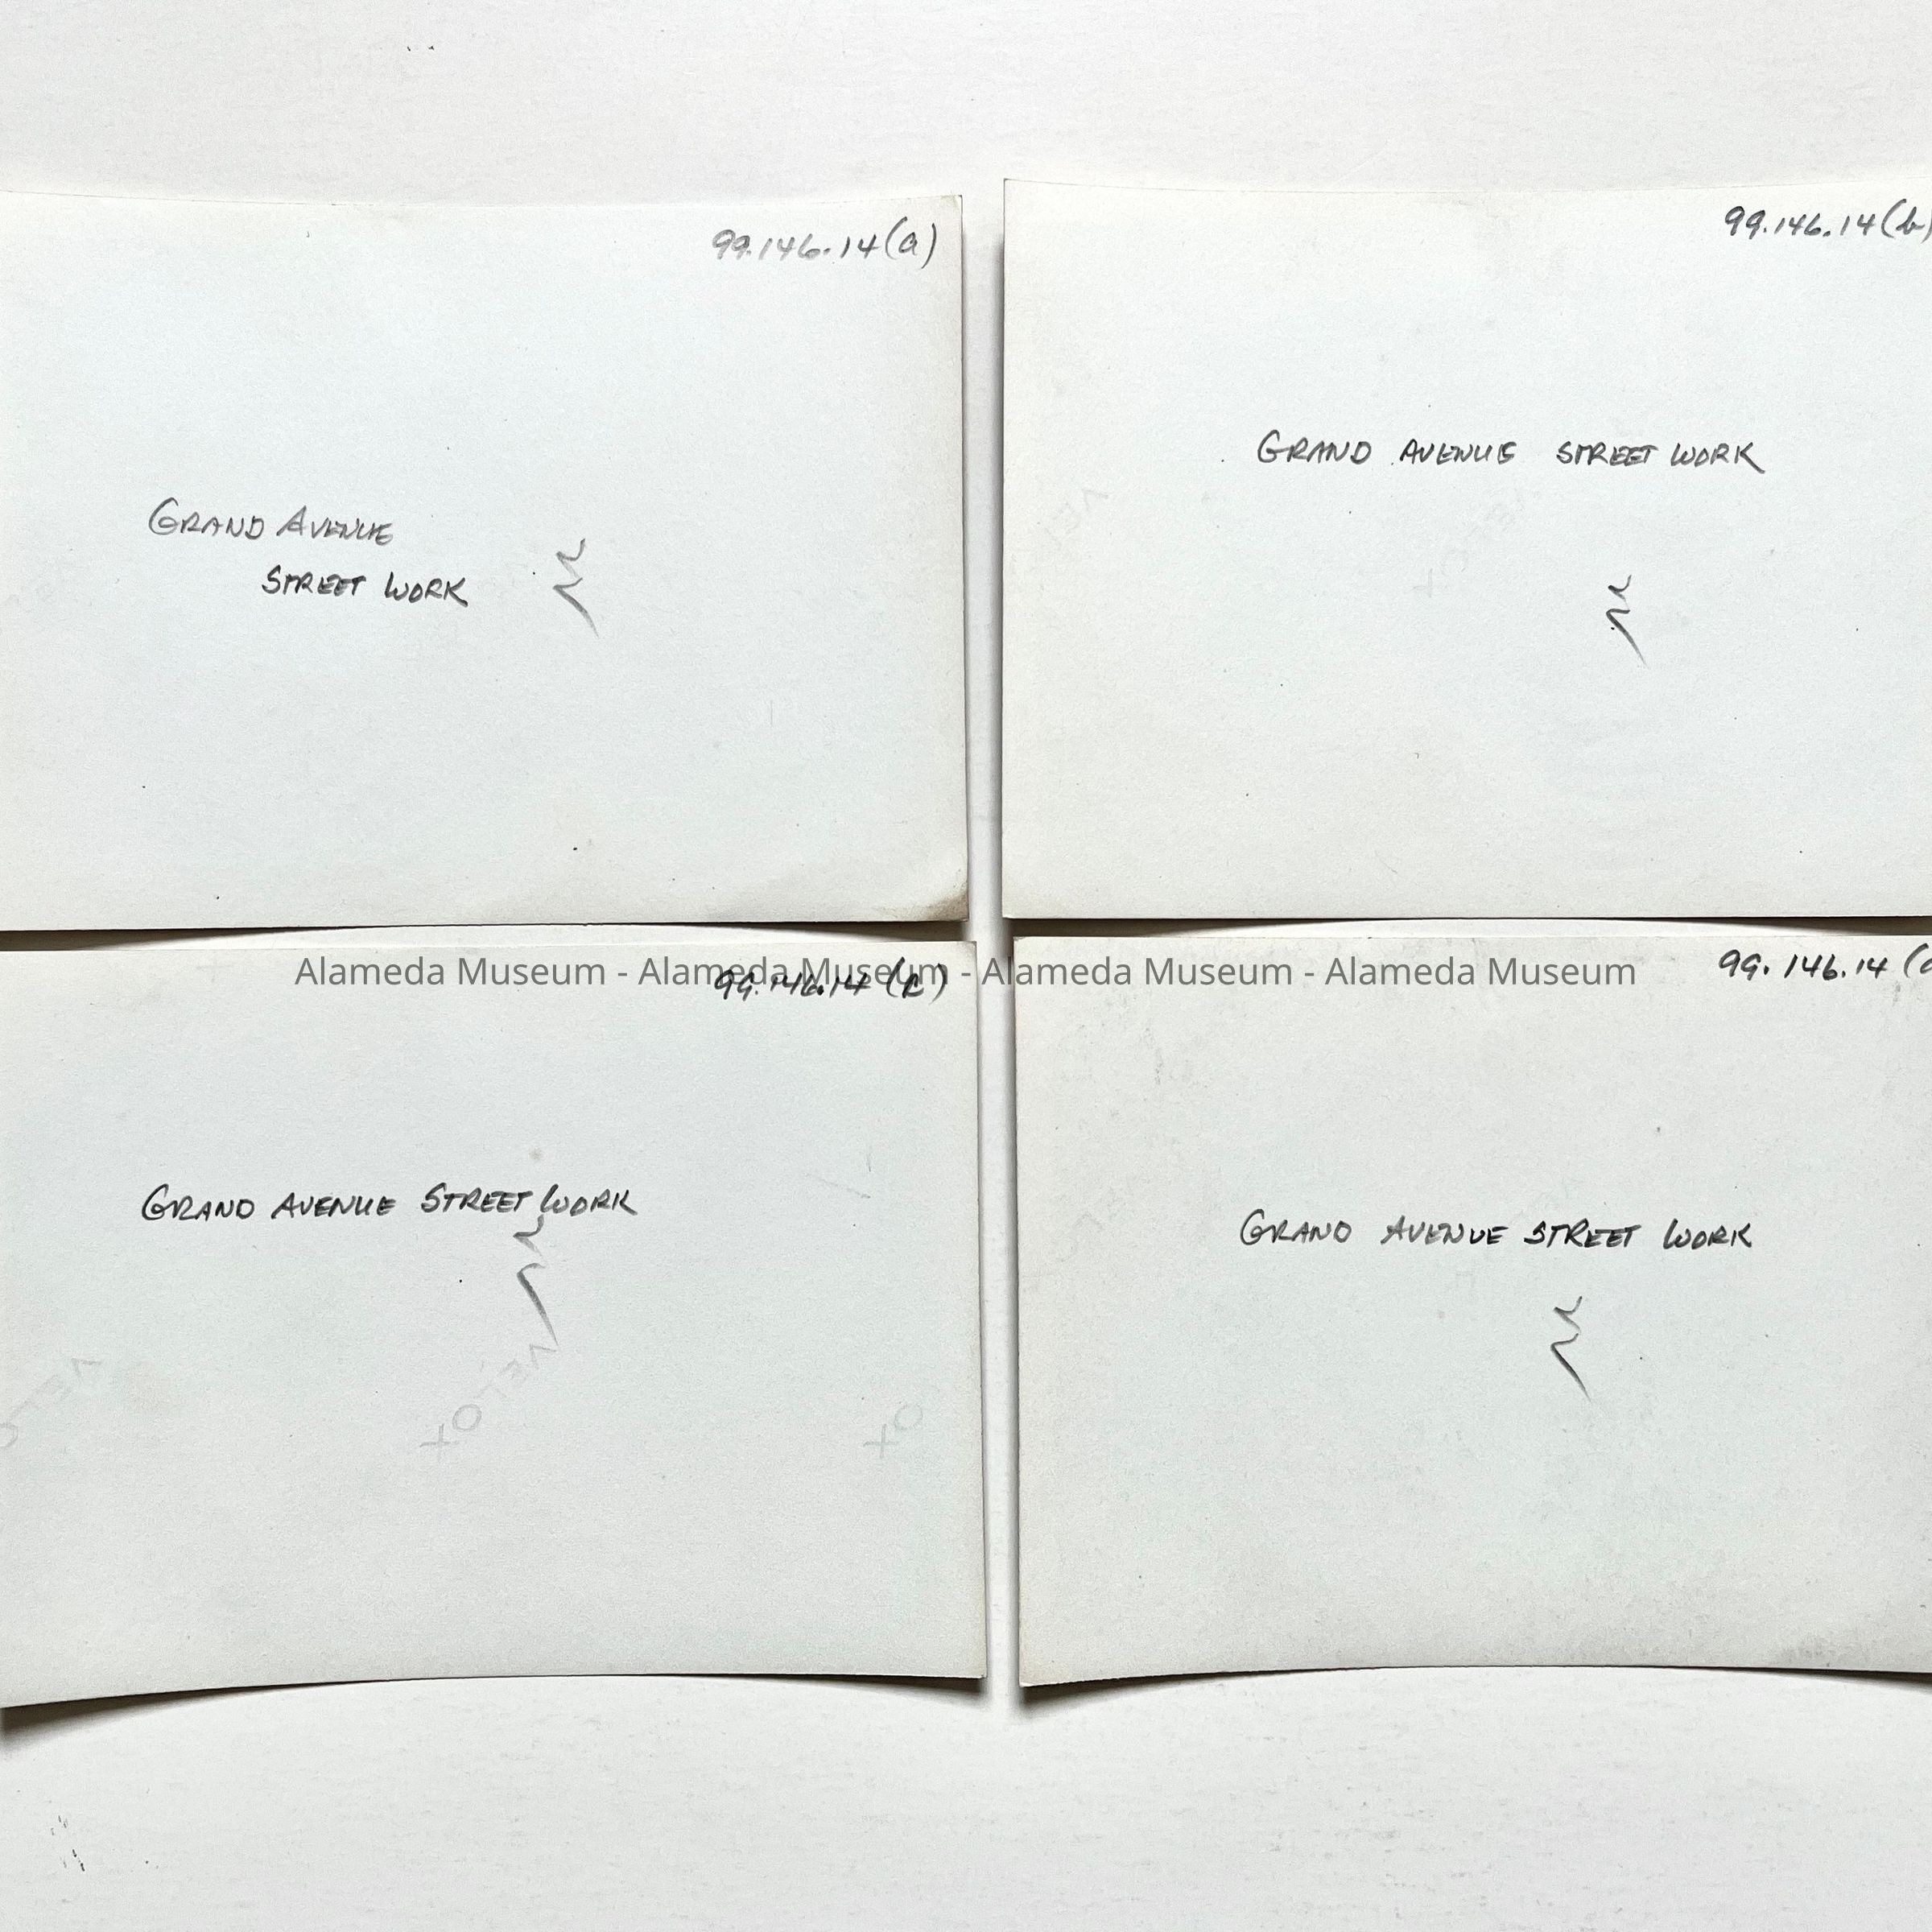 99.146.14(a)
GRAND AVENUE
STREET WORK
99.146.14(b)
GRAND AVENUE STREET WORK
VELOX
Alameda Museum - Alameda Museum - Alameda Museum - Alameda Museum
99.146.14(c)
GRAND AVENUE STREET WORK
VELOX
99.146.14
GRAND AVENUE STREET WORK